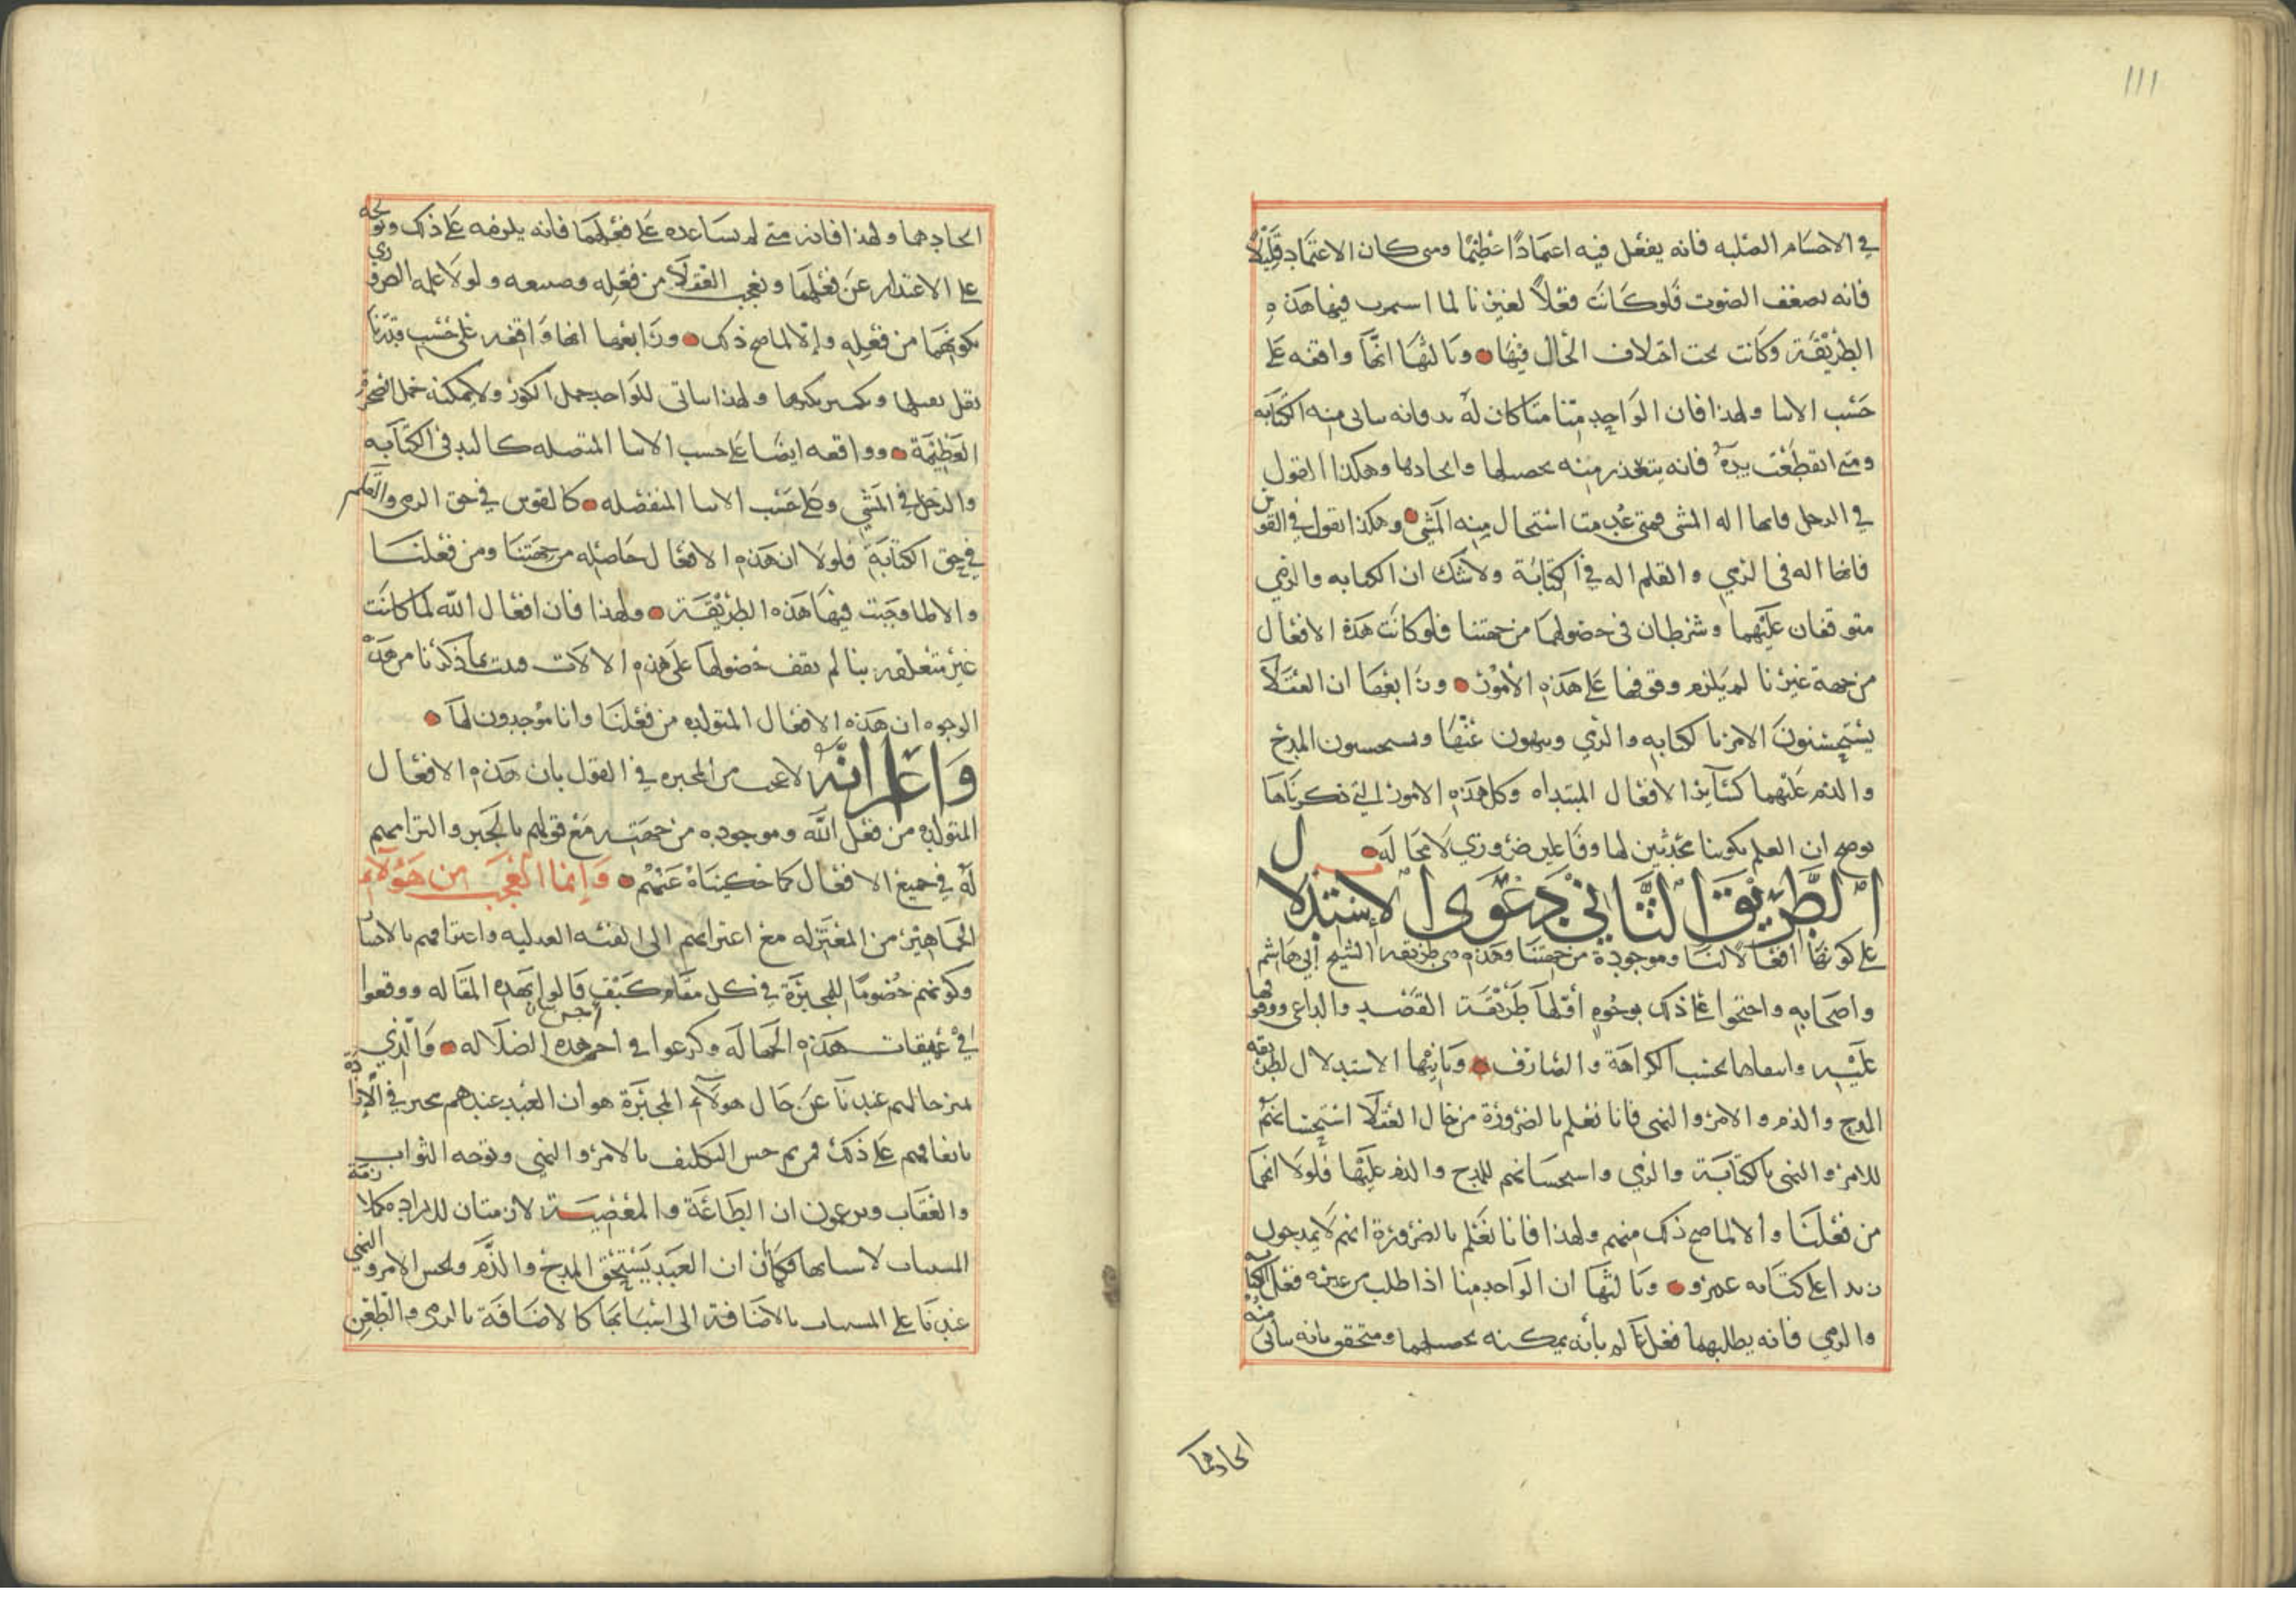 111
في الاجسام الصلبه فانه يفعل فيه اعتمادًا عظيمًا ومتى كان الاعتماد قليلًا
فانه يضعف الصوت فلو كانت فعلًا لغيرنا لما استمرت فيها هذه
الطريقة وكانت تحت اختلاف الحال فيها وثالثها انها واقعه على
حسب الالات ولهذا فان الواحد منا متى كان له يد فانه يتأتى منه الكتابه
ومتى انقطعت يده فانه يتعذر منه تحصيلها وايجادها وهكذا القول
في الرجل فانها اله المشي فمتى عدمت استحال منه المشي وهكذا نقول في القوس
فانها اله في الرمي والقلم اله في الكتابة ولا شك ان الكتابه والرمي
متوقفان عليهما وشرطان في حصولهما من جهتنا فلو كانت هذه الافعال
من جهة غيرنا لم يلزم وقوفها على هذه الأمور ورابعها ان العقلا
يستحسنون الامر بالكتابه والرمي وينهون عنها ويستحسنون المدح
والذم عليهما كسائر الافعال المبتداه وكل هذه الامور التي ذكرناها
توضح ان العلم بكوننا محدثين لها وفاعلين ضروري لا محاله
الطريق الثاني دعوى الاستدلال
على كونها افعالًا لنا وموجودة من جهتنا وهذه هي طريقه الشيخ أبي هاشم
واصحابه واحتجوا على ذلك بوجوه أولها طريقة القصد والداعي ووقوفها
عليه وانتفاها بحسب الكراهة والصارف وثانيها الاستدلال بطريقه
المدح والذم والامر والنهي فانا نعلم بالضرورة من حال العقلا استحسانهم
للامر والنهي بالكتابة والرمي واستحسانهم للمدح والذم عليها فلولا انهما
من فعلنا والا لما صح ذلك منهم ولهذا فانا نعلم بالضرورة انهم لا يمدحون
زيدا على كتابه عمرو وثالثها ان الواحد منا اذا طلب من غيره فعل الكتابه
والرمي فانه يطلبهما فعل عالم بأنه يمكنه تحصيلهما ومتحقق بانه يتأتى منه
ايجادهما
ايجادهما ولهذا فانه متى لم يساعده على فعلهما فانه يلومه على ذلك وتوجه
على الاعتذار عن فعلهما وتعجب العقلا من فعله وصنعه ولولا علمه الضروري
بكونهما من فعله وإلا لما صح ذلك ورابعها انها واقفه على حسب قدرنا
تقل بقلها وتكثر بكثرها ولهذا يتاتى للواحد حمل الكوز ولا يمكنه حمل الصخرة
العظيمة وواقعه ايضا على حسب الالات المتصله كاليد في الكتابه
والرجل في المشي وعلى حسب الالات المنفصله كالقوس في حق الرمي والقلم
في حق الكتابة فلولا ان هذه الافعال حاصله من جهتنا ومن فعلنا
والا لما وجبت فيها هذه الطريقة ولهذا فان افعال الله لما كانت
غير متعلقه بنا لم يقف حصولها على هذه الالات فثبت بما ذكرنا من هذه
الوجوه ان هذه الافعال المتولده من فعلنا وانا موجدون لها
واعلم انه لا عجب من المجبره في القول بان هذه الافعال
المتولده من فعل الله وموجوده من جهته مع قولهم بالجبر والتزامهم
له في جميع الافعال كما حكيناه عنهم وإنما العجب من هؤلاء
الجماهير من المعتزله مع اعتزائهم الى الفئه العدليه واعترافهم بالانصاف
وكونهم خصومًا للمجبرة في كل مقام كيف قالوا بهذه المقاله ووقعوا
في عميقات هذه الجهاله وكرعوا في هذه الضلاله والذي
من حالهم عندنا عن حال هولاء المجبرة هو ان العبد عندهم مخير في الارادة
باتفاقهم على ذلك حسن التكليف بالامر والنهي وتوجه الثواب
والعقاب ويزعمون ان الطاعة والمعصية لازمتان للاراده ملازمة
المسببات لاسبابها فكان ان العبد يستحق المدح والذم ويحسن الامر والنهي
عندنا على المسببات بالاضافة الى اسبابها كالاضافة بالرمي والطعن